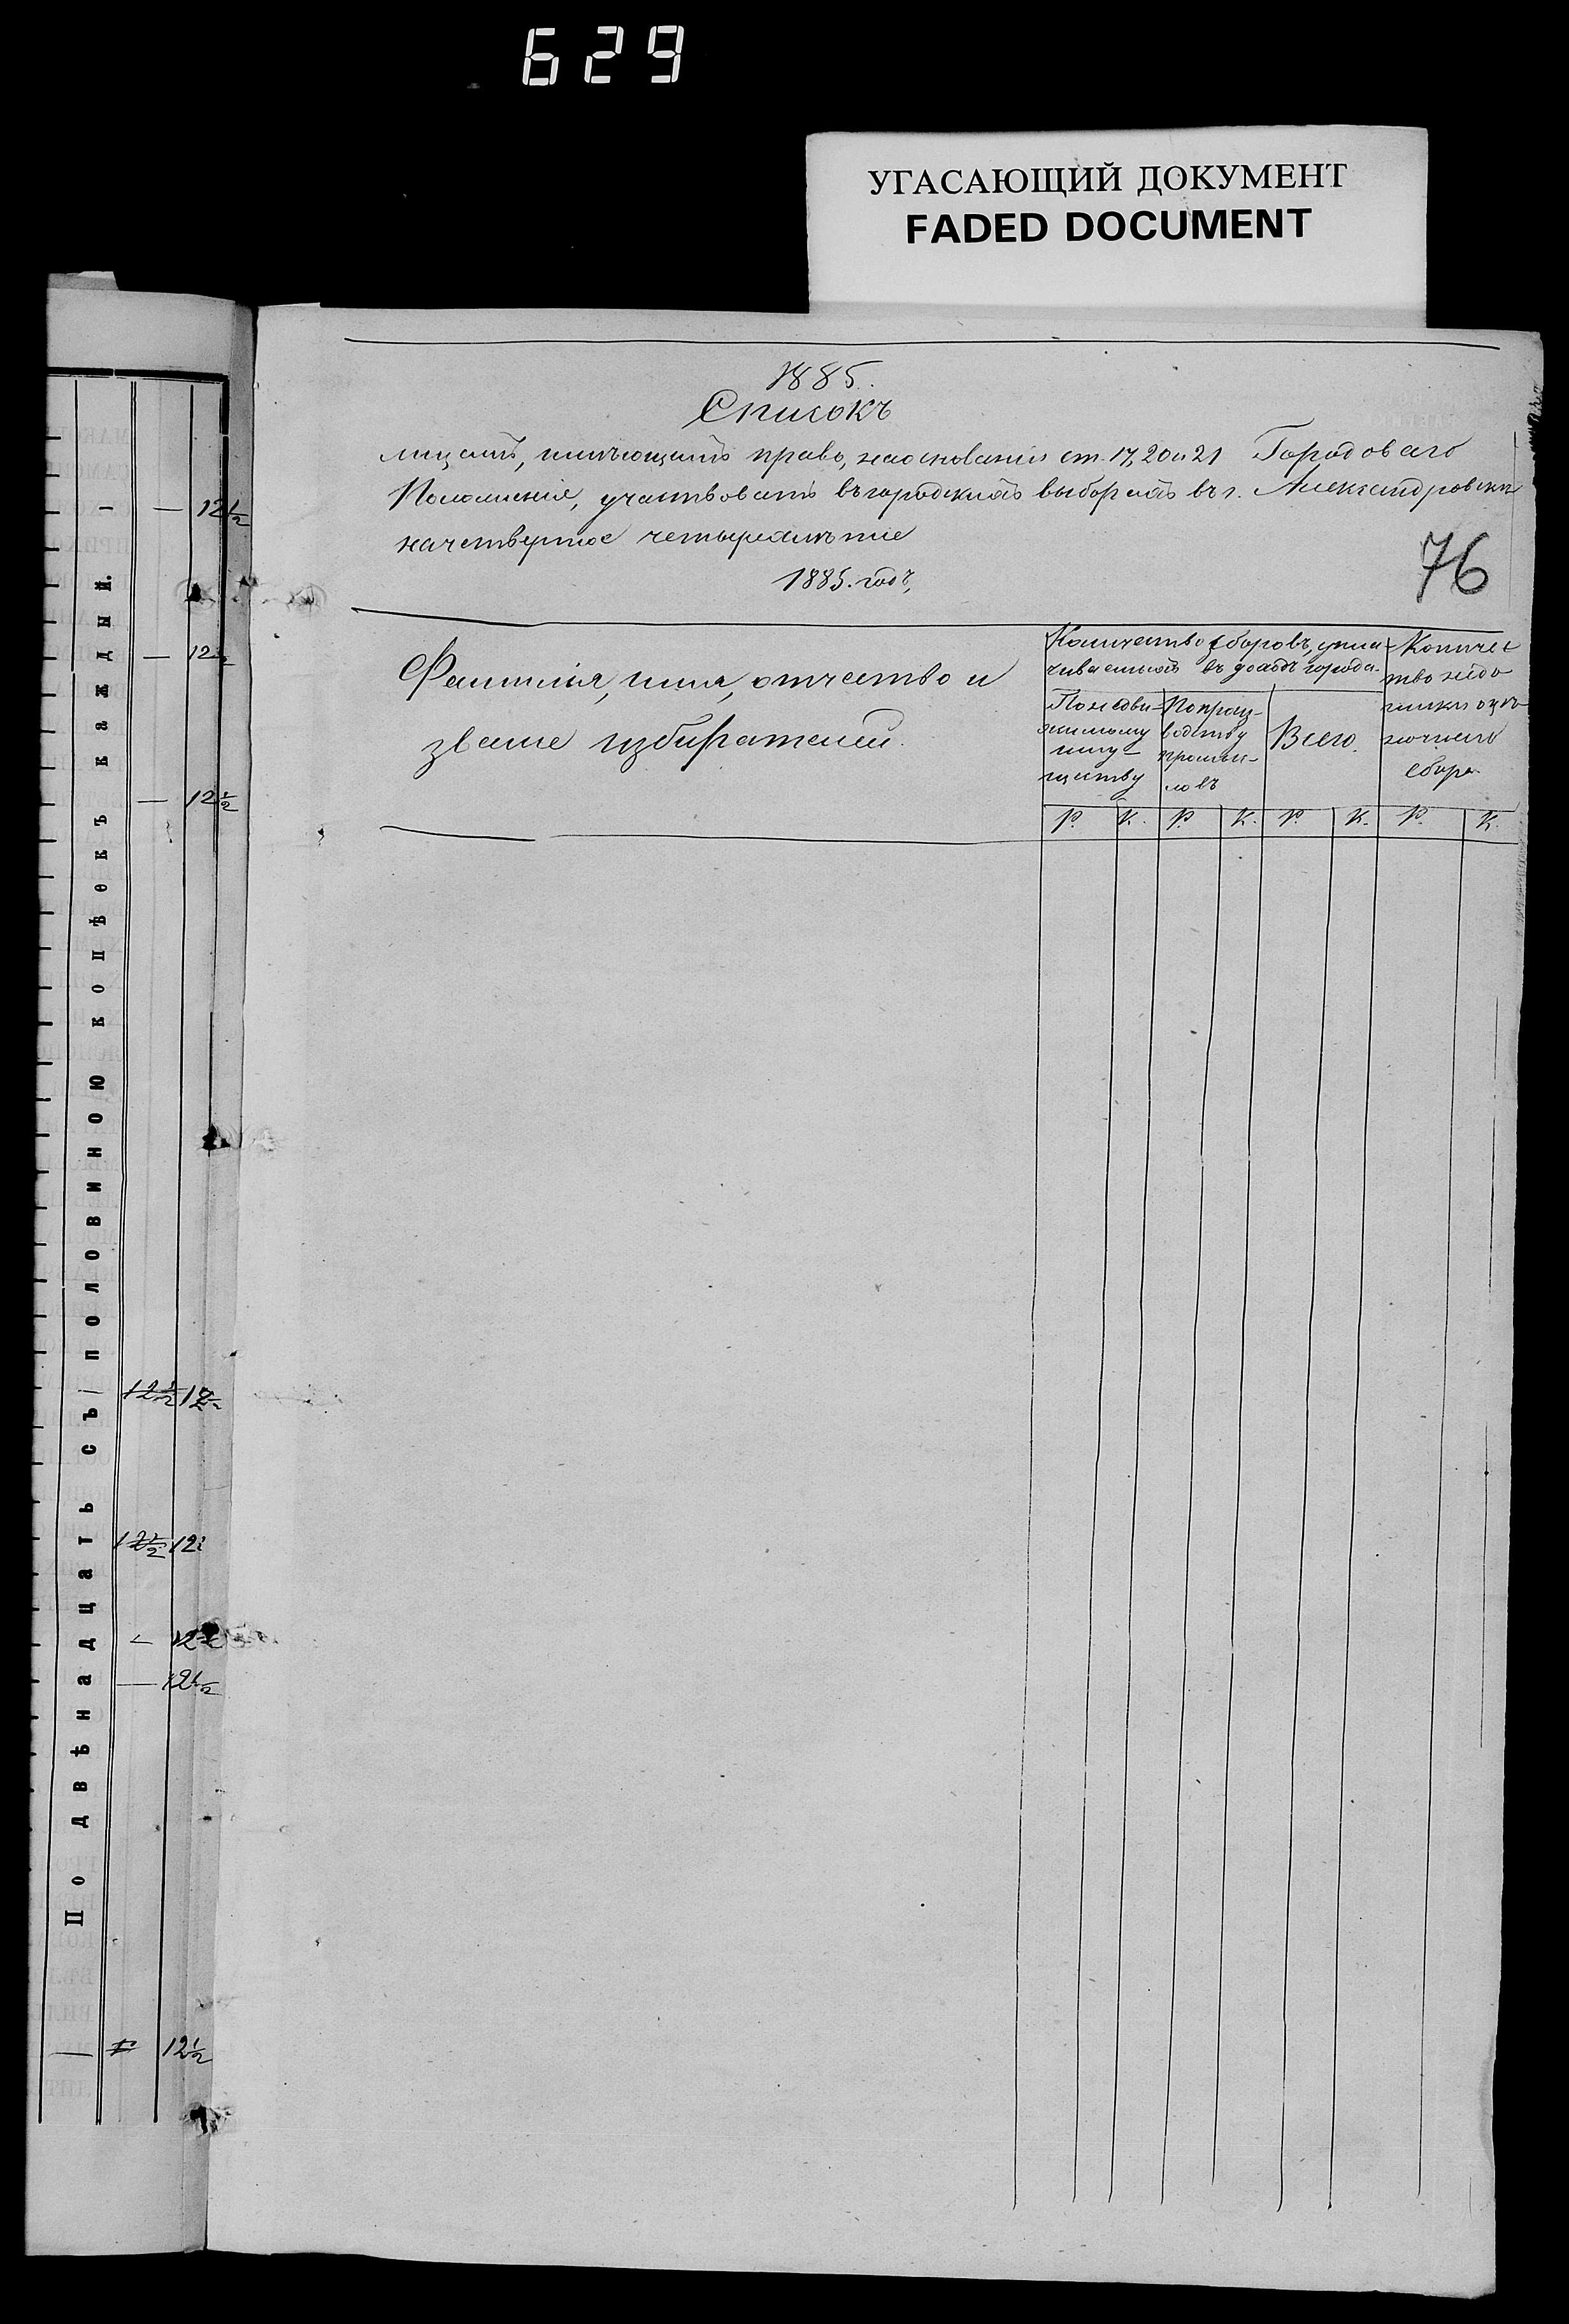 629
УГАСАЮЩИЙ ДОКУМЕНТ
FADED DOCUMENT
1885.
Списокъ
лицамъ, имѣющимъ право, на основаніи ст. 17, 20 и 21 Городоваго
Положенія, участвовать въ городскихъ выборахъ въ г. Александровскѣ
на четвертое четырехлѣтіе
1885. годъ,
76
Фамилія, имя, отчество и
званіе избирателей.
Количество сборовъ, упла-
чиваемыхъ въ доходъ города.
По недви-
жимому
иму-
ществу
По произ-
водству
промы-
ловъ
Всего.
Количес
тво недо
имки оцѣ-
ночнаго
сбора.
Р. К. Р. К. Р. К. Р. К.
По двѣнадцать съ половиною копѣекъ каждый.
— 12 1/2
— 12 1/2
— 12 1/2
12 1/2 12 1/2
12 1/2 12
— 12 1/2
— 12 1/2
— 12 1/2